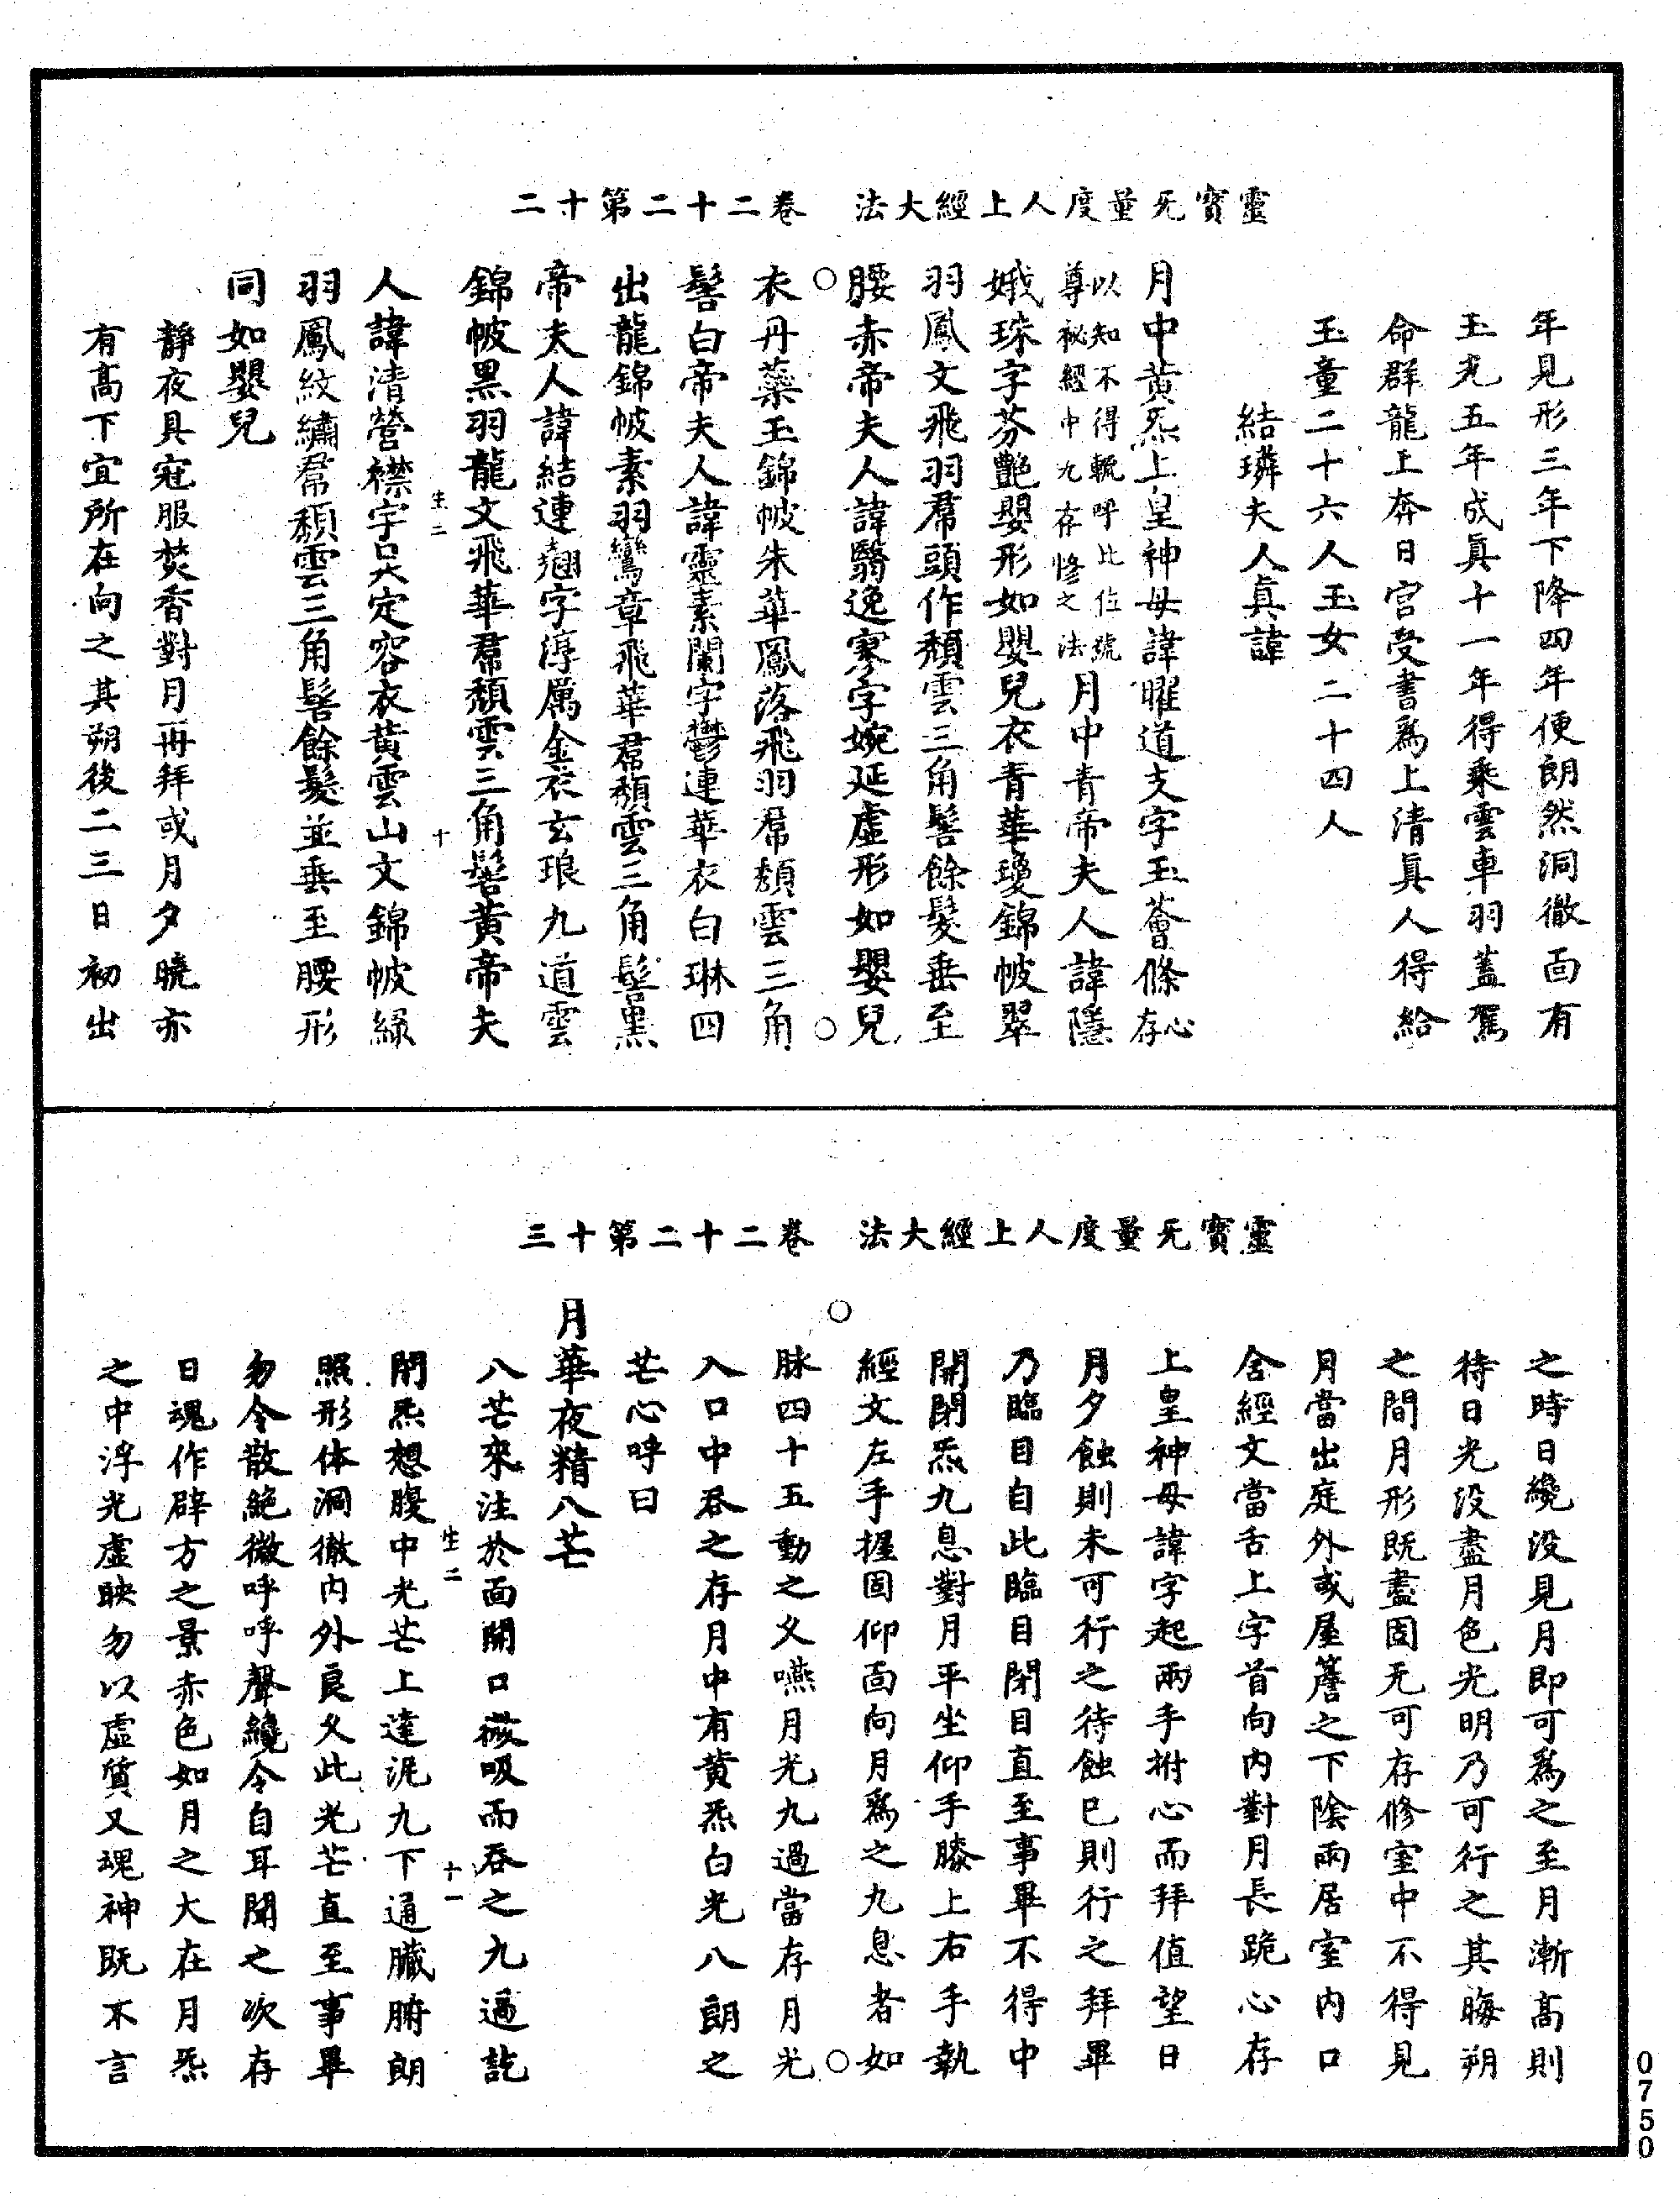 靈寶无量度人上經大法　卷二十二第十二
年見形三年下降四年便朗然洞徹面有
玉光五年成真十一年得乘雲車羽蓋駕
命群龍上奔日宮受書為上清真人得給
玉童二十六人玉女二十四人
結璘夫人真諱
月中黃炁上皇神母諱曜道支字玉薈條心存
以知不得輒呼比位號
尊祕經中九存修之法月中青帝夫人諱隱
娥珠字芬艷嬰形如嬰兒衣青華瓊錦帔翠
羽鳳文飛羽帬頭作頹雲三角髻餘髮垂至
腰赤帝夫人諱翳逸寥字婉延虛形如嬰兒
衣丹蘂玉錦帔朱華鳳落飛羽帬頹雲三角
髻白帝夫人諱靈素蘭字鬱連華衣白琳四
出龍錦帔素羽鸞章飛華帬頹雲三角髻黑
帝夫人諱結連翹字淳厲金衣玄琅九道雲
錦帔黑羽龍文飛華帬頹雲三角髻黃帝夫
生二　十
人諱清營襟字炅定容衣黃雲山文錦帔綠
羽鳳紋繡帬頹雲三角髻餘髮並垂至腰形
同如嬰兒
靜夜具冠服焚香對月再拜或月夕曉亦
有高下宜所在向之其朔後二三日初出
靈寶无量度人上經大法　卷二十二第十三
之時日纔没見月即可為之至月漸高則
待日光没盡月色光明乃可行之其晦朔
之間月形既盡固无可存修室中不得見
月當出庭外或屋簷之下陰雨居室内口
含經文當舌上字首向内對月長跪心存
上皇神母諱字起兩手拊心而拜值望日
月夕蝕則未可行之待蝕已則行之拜畢
乃臨目自此臨目閉目直至事畢不得中
開閉炁九息對月平坐仰手膝上右手執
經文左手握固仰面向月為之九息者如
脉四十五動之乆嚥月光九過當存月光
入口中吞之存月中有黃炁白光八朗之
芒心呼曰
月華夜精八芒
八芒來注於面開口微吸而吞之九過訖
生二　十一
閉炁想腹中光芒上達泥九下通臟腑朗
照形体洞徹内外良乆此光芒直至事畢
勿令散絕微呼呼聲纔令自耳聞之次存
日魂作辟方之景赤色如月之大在月炁
之中浮光虛映勿以虛質又魂神既不言
0750